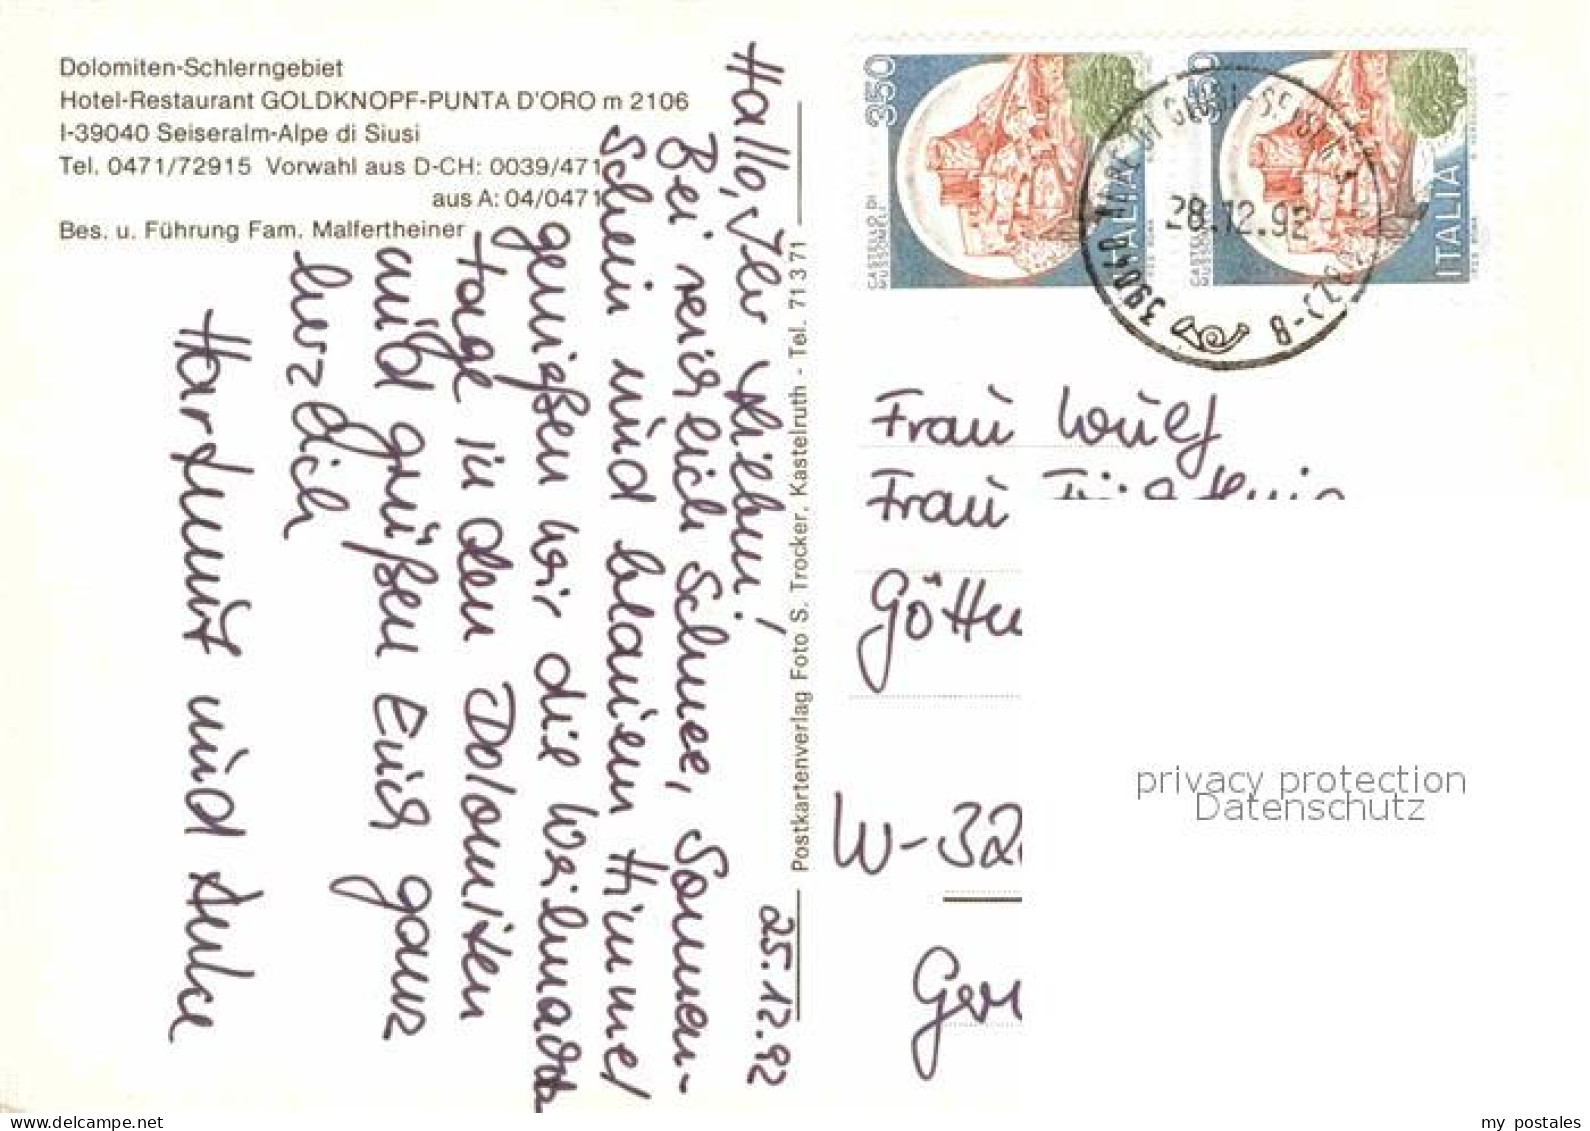 Dolomiten-Schlerngebiet
Hotel-Restaurant GOLDKNOPF-PUNTA D'ORO m 2106
I-39040 Seiseralm-Alpe di Siusi
Tel. 0471/72915 Vorwahl aus D-CH: 0039/471
aus A: 04/0471
Bes. u. Führung Fam. Malfertheiner
25.12.92
Hallo, Ihr Lieben!
Bei reichlich Schnee, Sonnen-
schein und blauem Himmel
genießen wir die Weihnachts
tage in den Dolomiten
und grüßen Euch ganz
herzlich
Hartmut und Anke
Postkartenverlag Foto S. Trocker, Kastelruth - Tel. 71371
350
CASTELLO DI
MUSSOMELI
ITALIA
350
CASTELLO DI
MUSSOMELI
ITALIA
39040
28.12.92
Frau Wulf
Frau
W-32
privacy protection
Datenschutz
my postales